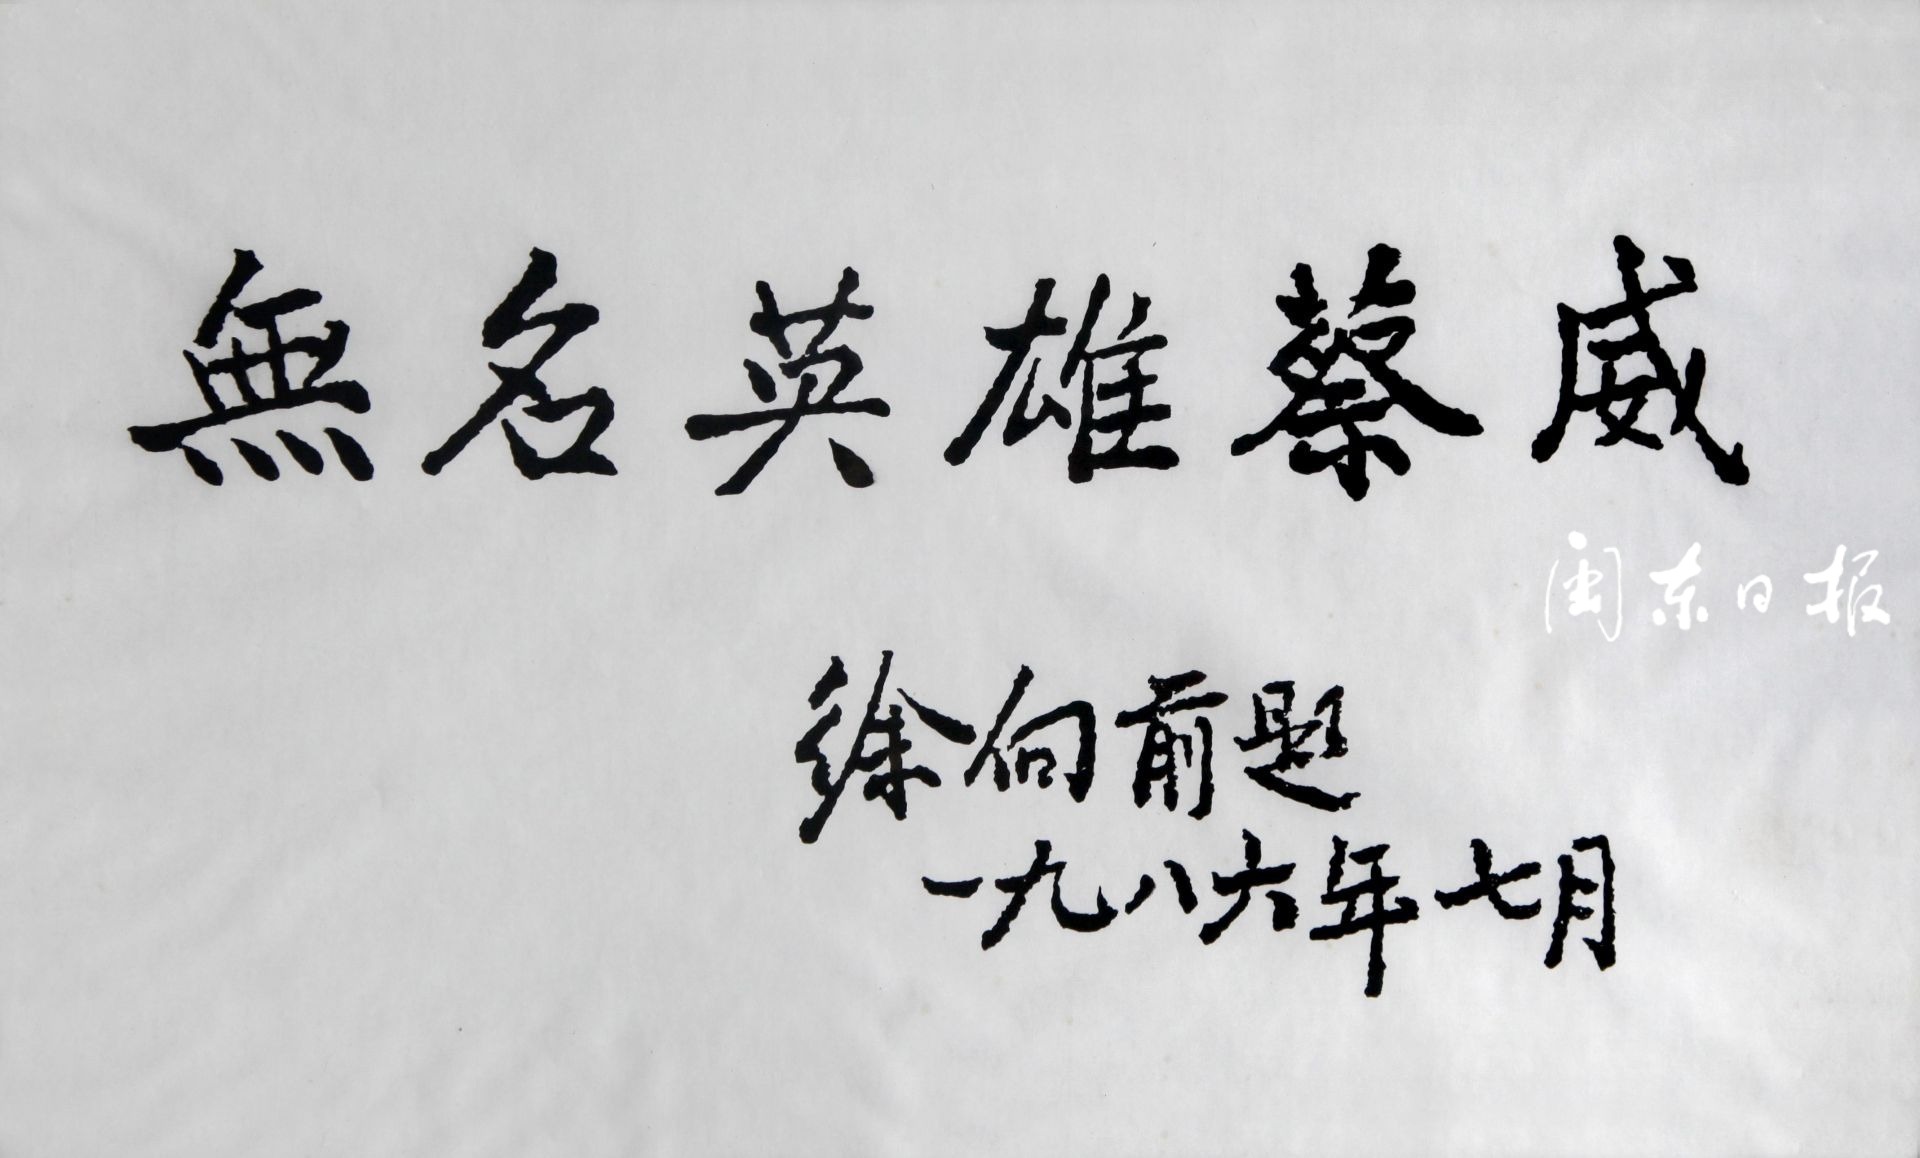 無名英雄蔡威
闽东日报
徐向前题
一九八六年七月